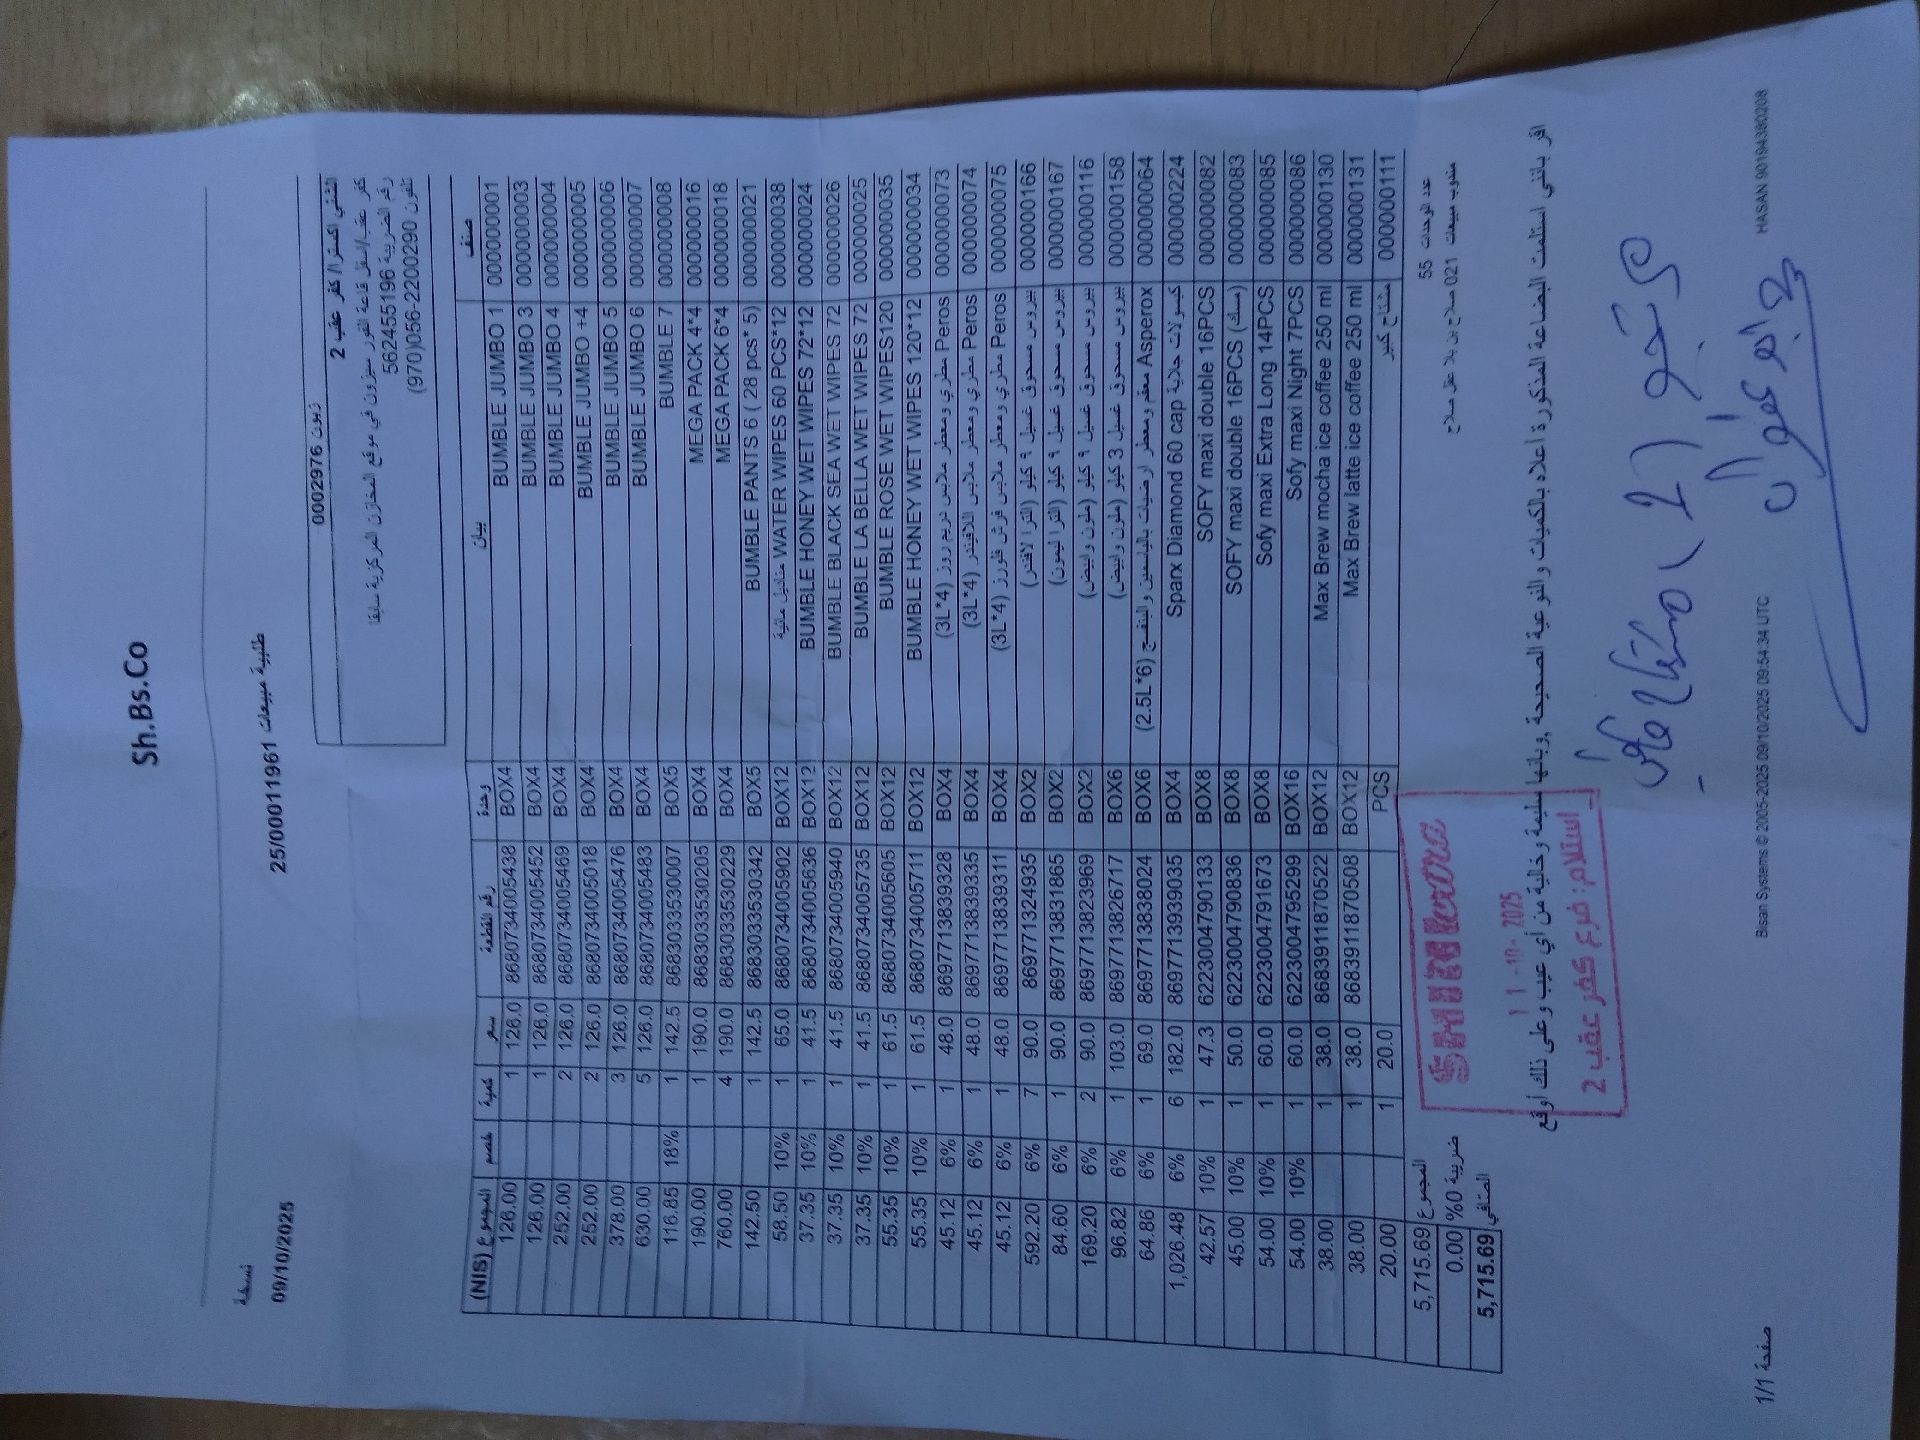 Sh.Bs.Co
نسخة
طلبية مبيعات 25/00011961
09/10/2025
زبون 0002976
الشني اكسترا/ كفر عقب 2
كفر عقب/النقل قاعة الفورسيزون في موقع المخازن المركزية سابقا
رقم الضريبة 562455196
تلفون 2200290-056(970)
صنف بيان وحدة رقم القطعة سعر كمية خصم المجموع (NIS)
0000000001 BUMBLE JUMBO 1 BOX4 8680734005438 126.0 1 126.00
0000000003 BUMBLE JUMBO 3 BOX4 8680734005452 126.0 1 126.00
0000000004 BUMBLE JUMBO 4 BOX4 8680734005469 126.0 2 252.00
0000000005 BUMBLE JUMBO +4 BOX4 8680734005018 126.0 2 252.00
0000000006 BUMBLE JUMBO 5 BOX4 8680734005476 126.0 3 378.00
0000000007 BUMBLE JUMBO 6 BOX4 8680734005483 126.0 5 630.00
0000000008 BUMBLE 7 BOX5 8683033530007 142.5 1 18% 116.85
0000000016 MEGA PACK 4*4 BOX4 8683033530205 190.0 1 190.00
0000000018 MEGA PACK 6*4 BOX4 8683033530229 190.0 4 760.00
0000000021 BUMBLE PANTS 6 ( 28 pcs* 5) BOX5 8683033530342 142.5 1 142.50
0000000038 مناديل مائية WATER WIPES 60 PCS*12 BOX12 8680734005902 65.0 1 10% 58.50
0000000024 BUMBLE HONEY WET WIPES 72*12 BOX12 8680734005636 41.5 1 10% 37.35
0000000026 BUMBLE BLACK SEA WET WIPES 72 BOX12 8680734005940 41.5 1 10% 37.35
0000000025 BUMBLE LA BELLA WET WIPES 72 BOX12 8680734005735 41.5 1 10% 37.35
0000000035 BUMBLE ROSE WET WIPES120 BOX12 8680734005605 61.5 1 10% 55.35
0000000034 BUMBLE HONEY WET WIPES 120*12 BOX12 8680734005711 61.5 1 10% 55.35
0000000073 Peros مطري ومعطر ملابس دريم روز (3L*4) BOX4 8697713839328 48.0 1 6% 45.12
0000000074 Peros مطري ومعطر ملابس اللافيندر (3L*4) BOX4 8697713839335 48.0 1 6% 45.12
0000000075 Peros مطري ومعطر ملابس فرش فلورز (3L*4) BOX4 8697713839311 48.0 1 6% 45.12
0000000166 بيروس مسحوق غسيل ٩ كيلو (الترا لافندر) BOX2 8697713324935 90.0 7 6% 592.20
0000000167 بيروس مسحوق غسيل ٩ كيلو (الترا ليمون) BOX2 8697713831865 90.0 1 6% 84.60
0000000116 بيروس مسحوق غسيل ٩ كيلو (ملون وابيض) BOX2 8697713823969 90.0 2 6% 169.20
0000000158 بيروس مسحوق غسيل 3 كيلو (ملون وابيض) BOX6 8697713826717 103.0 1 6% 96.82
0000000064 Asperox معقم ومعطر ارضيات بالياسمين والبنفسج (2.5L*6) BOX6 8697713838024 69.0 1 6% 64.86
0000000224 كبسولات جلاية Sparx Diamond 60 cap BOX4 8697713939035 182.0 6 6% 1,026.48
0000000082 SOFY maxi double 16PCS BOX8 6223004790133 47.3 1 10% 42.57
0000000083 SOFY maxi double 16PCS (مسك) BOX8 6223004790836 50.0 1 10% 45.00
0000000085 Sofy maxi Extra Long 14PCS BOX8 6223004791673 60.0 1 10% 54.00
0000000086 Sofy maxi Night 7PCS BOX16 6223004795299 60.0 1 10% 54.00
0000000130 Max Brew mocha ice coffee 250 ml BOX12 8683911870522 38.0 1 38.00
0000000131 Max Brew latte ice coffee 250 ml BOX12 8683911870508 38.0 1 38.00
0000000111 كبير PCS 20.0 1 20.00
المجموع 5,715.69
ضريبة 0% 0.00
الصافي 5,715.69
عدد الوحدات 55
مندوب مبيعات 021 صلاح بن بلا عقل صلاح
اقر بانني استلمت البضاعة المذكورة اعلاه بالكميات والنوعية الصحيحة وبانها سليمة وخالية من أي عيب وعلى ذلك أوقع
2025 -10- 1
استلام: فرع كفر عقب 2
Bisan Systems © 2005-2025 09/10/2025 09:54:34 UTC
HASAN 90194380208
صفحة 1/1